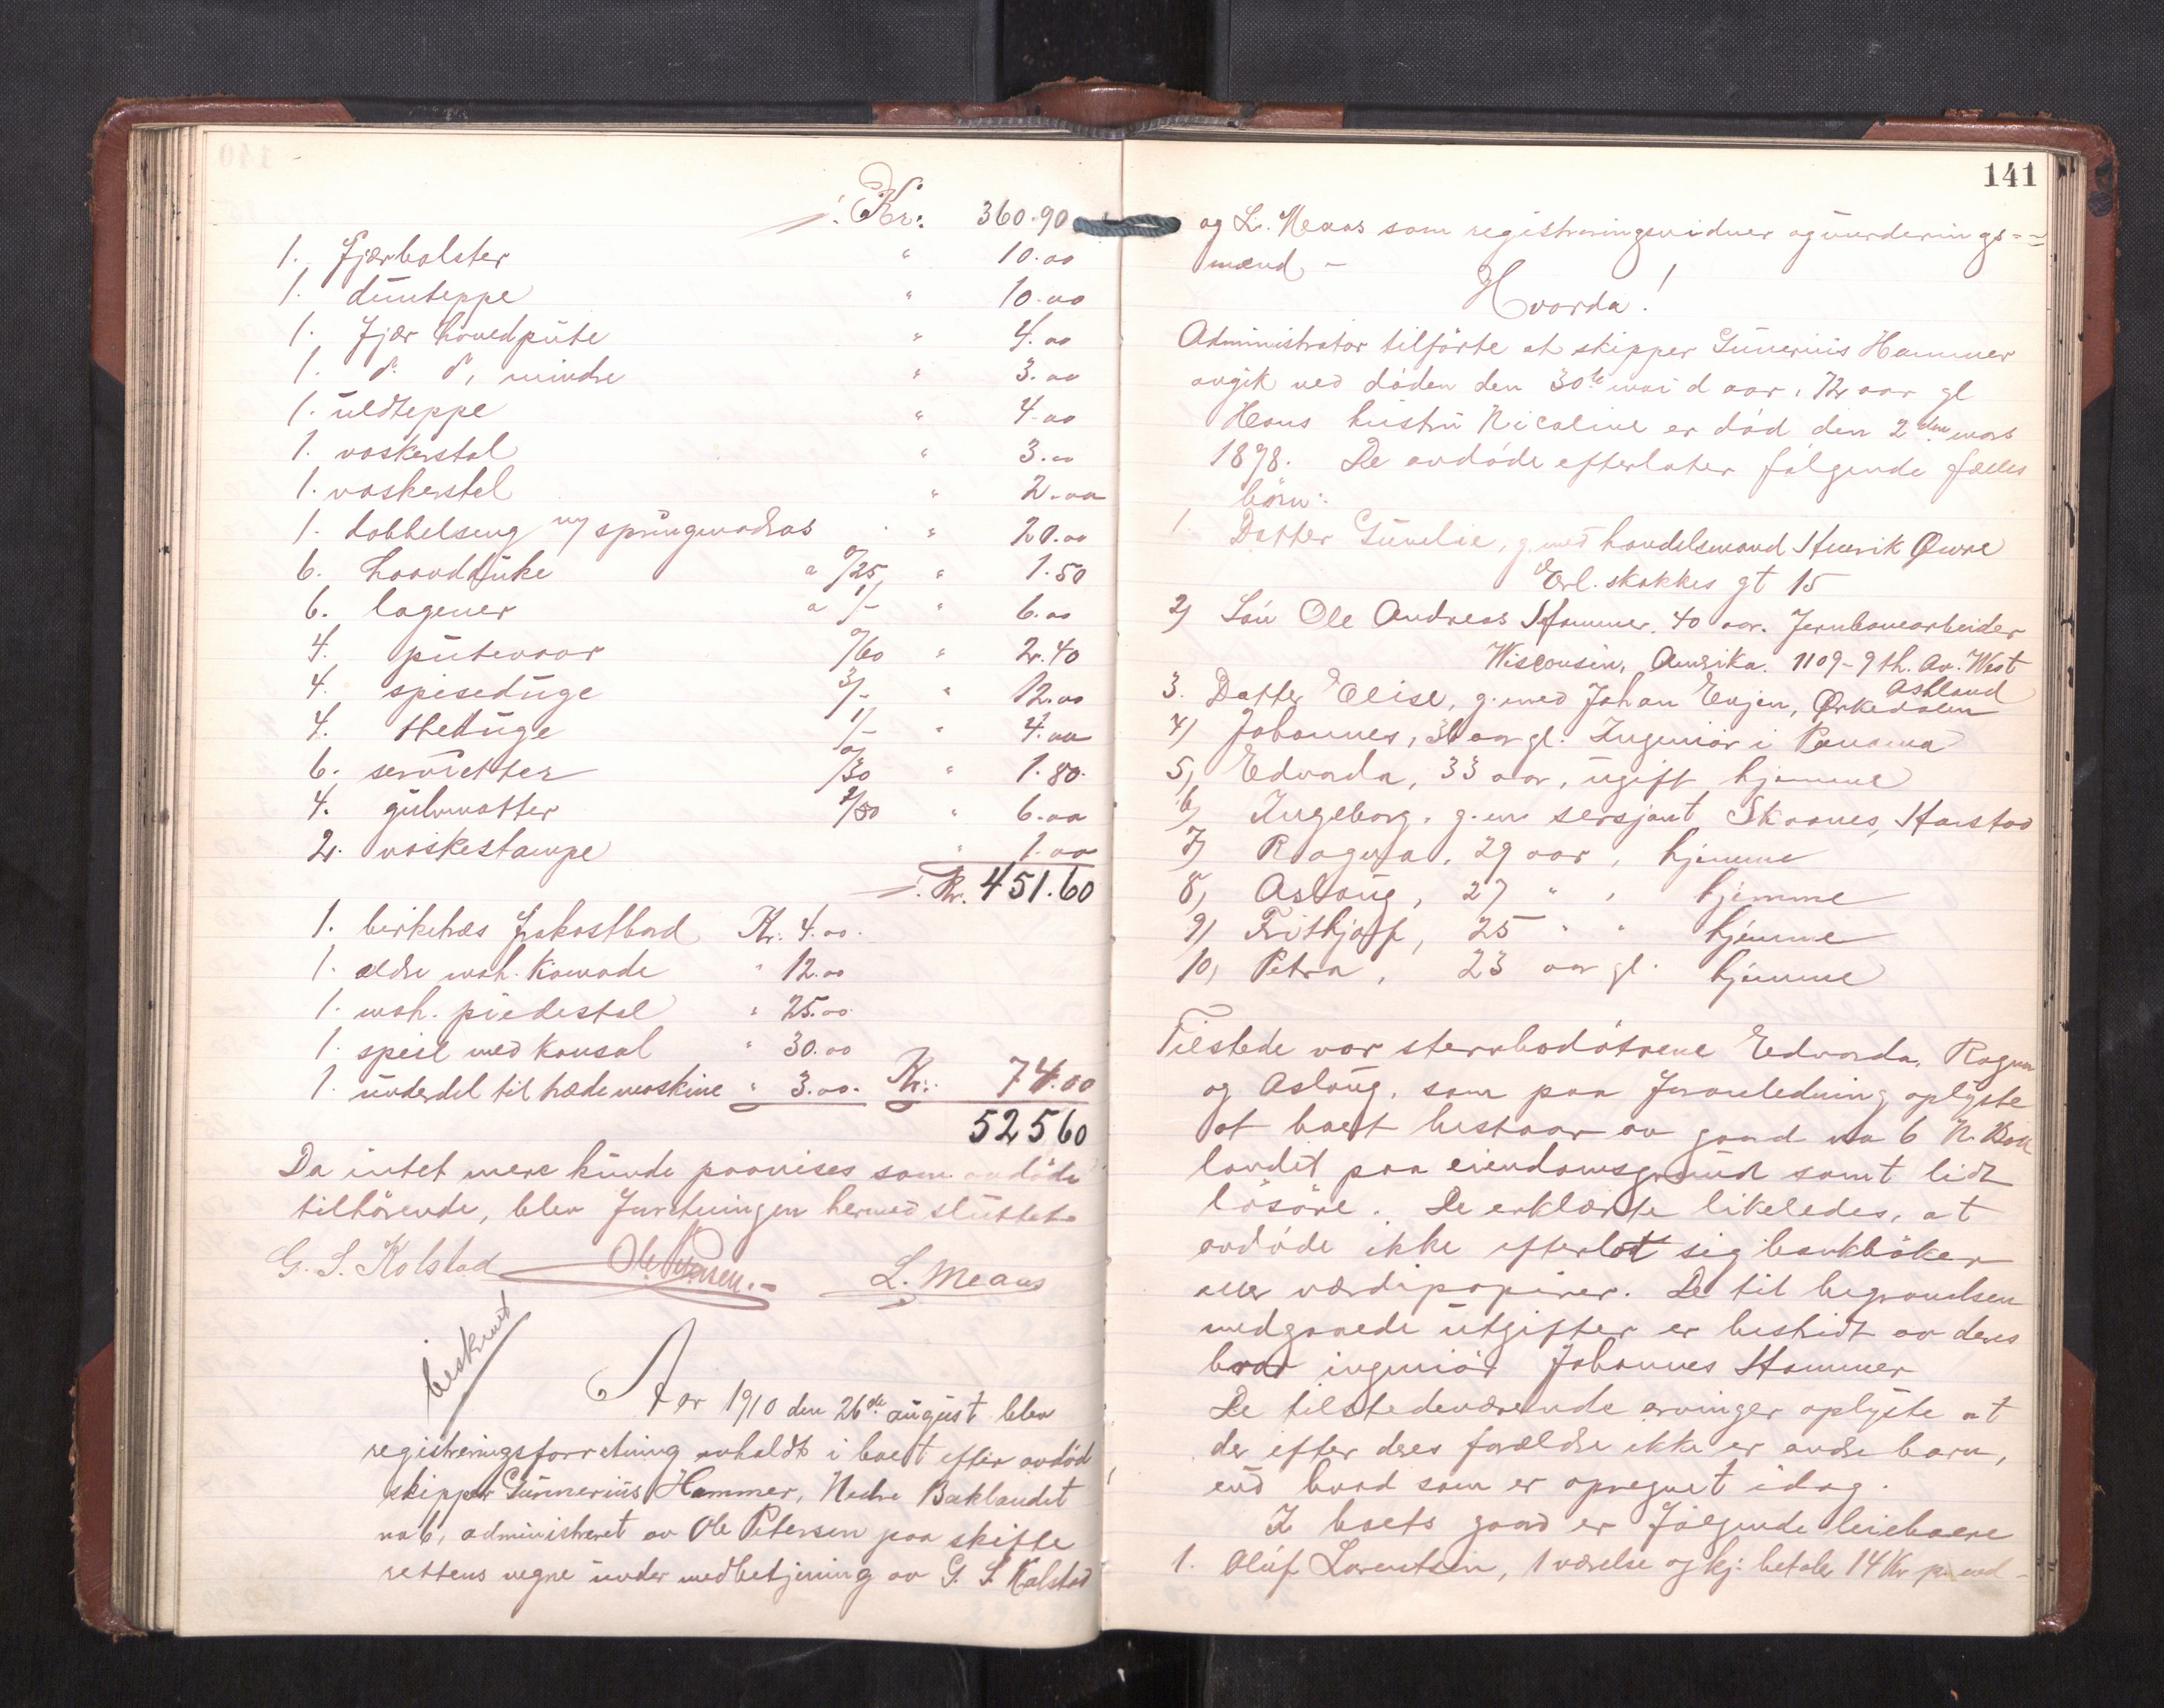 ÷ Kr: 360.90
1. Fjærbolster " 10.00
1. dunteppe " 10.00
1. Fjær hovedpute " 4.00
1. do do, mindre " 3.00
1. uldteppe " 4.00
1. vaskerstol " 3.00
1. vaskestel " 2.00
1. dobbelseng m/ springmadras " 20.00
6. haandduke a 0/25 " 1.50
6. lagener a 1/- " 6.00
4. putevaar 0/60 " 2.40
4. spiseduge 3/- " 12.00
4. theduge 1/- " 4.00
6. servietter 0/30 " 1.80
4. gulvmatter 1/50 " 6.00
2. vaskestampe " 1.00
÷ Kr. 451.60
1. birketræs frokostbord Kr. 4.00
1. ældre mah. Komode " 12.00
1. mah. piedestal " 25.00
1. speil med konsol " 30.00
1. underdel til trædemaskine " 3.00. Kr: 74.00
525 60
Da intet mere kunde paavises som avdöde
tilhörende, blev Forretningen hermed sluttet
G. S. Kolstad Ole Petersen.- L. Meaas
beskrevet
Aar 1910 den 26de august blev
registreringsforretning avholdt i boet efter avdöd
skipper Gunnerius Hammer, Nedre Baklandet
no 6, administreret av Ole Petersen paa skifte
rettens vegne under medbetjening av G. S. Kolstad
141
og L. Meaas som registreringsvidner og vurderings=
mænd -
Hvorda!
Administrator tilförte at skipper Gunerius Hammer
avgik ved döden den 30te mai d aar, 72 aar gl
Hans hustru Nicoline er död den 2den mars
1898. De avdöde efterlater fölgende fælles
börn:
1. Datter Gunelie, g. med handelsmand Henrik Öwre
Erl. skakkes gt 15
2) Sön Ole Andreas Hammer. 40 aar. Jernbanearbeider
Wisconsin, Amerika. 1109 - 9th. Av. West
Ashland
3. Datter Elise, g. med Johan Evjen, Ørkedalen
4) Johannes, 36 aar gl. Ingeniör i Panama
5) Edvarda, 33 aar, ugift hjemme
6) Ingeborg. g. m sersjant Skaanes, Harstad
7) Ragna, 29 aar, hjemme
8) Aslaug, 27 " , hjemme
9) Frithjof, 25 " " hjemme
10) Petra, 23 aar gl. hjemme
Tilstede var sterbodötrene Edvarda, Ragna
og Aslaug, som paa foranledning oplyste
at boet bestaar av gaard no 6 N. Bak
landet paa eiendomsgrund samt lidt
lösöre. De erklærte likeledes, at
avdöde ikke efterlot sig bankböker
eller værdipapirer. De til begravelsen
medgaaede utgifter er bestridt av deres
bror ingeniör Johannes Hammer
De tilstedeværende arvinger oplyste at
der efter deres forældre ikke er andre barn,
end hvad som er opregnet idag.
I boets gaard er fölgende leieboere
1. Oluf Lorentsen, 1 værelse og kj. betaler 14 Kr pr. md -